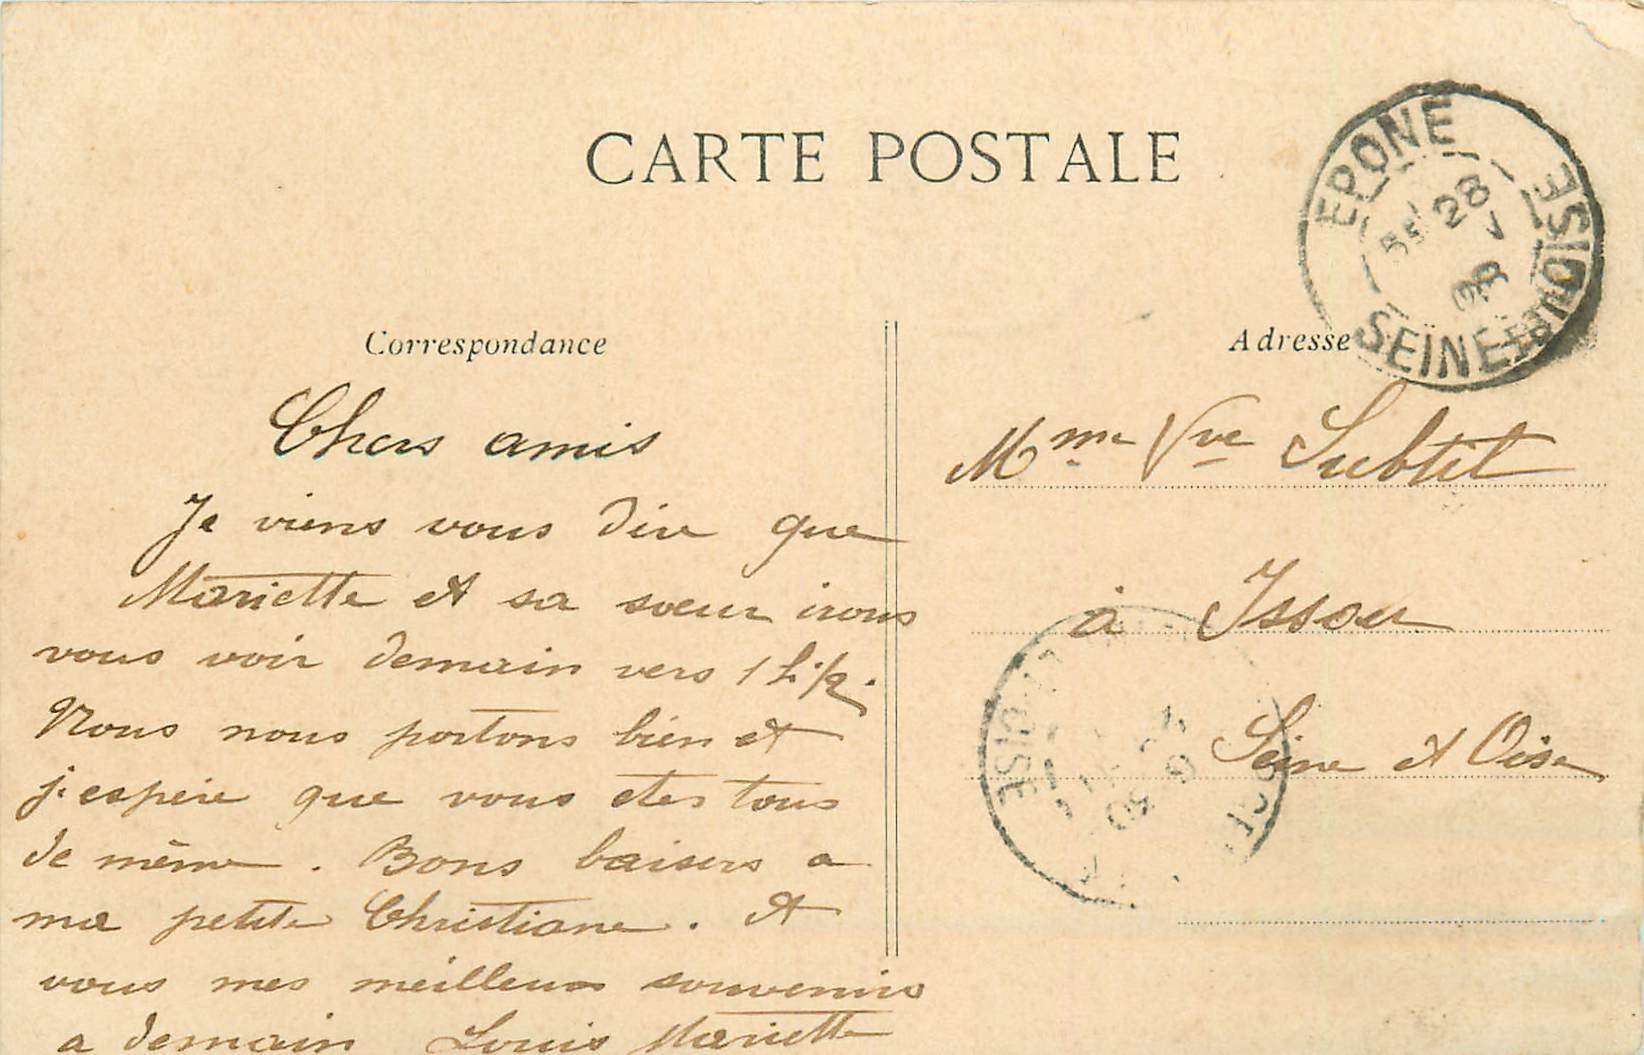 CARTE POSTALE
EPONE
SEINE-ET-OISE
28
Correspondance
Chers amis
Je viens vous dire que
Mariette et sa soeur irons
vous voir demain vers 1 h 1/2.
Nous nous portons bien et
j'espère que vous etes tous
de même. Bons baisers a
ma petite Christiane. et
vous mes meilleurs souvenirs
a demain Louis Mariette
Adresse
Mme Vve Subtil
à Issou
Seine et Oise